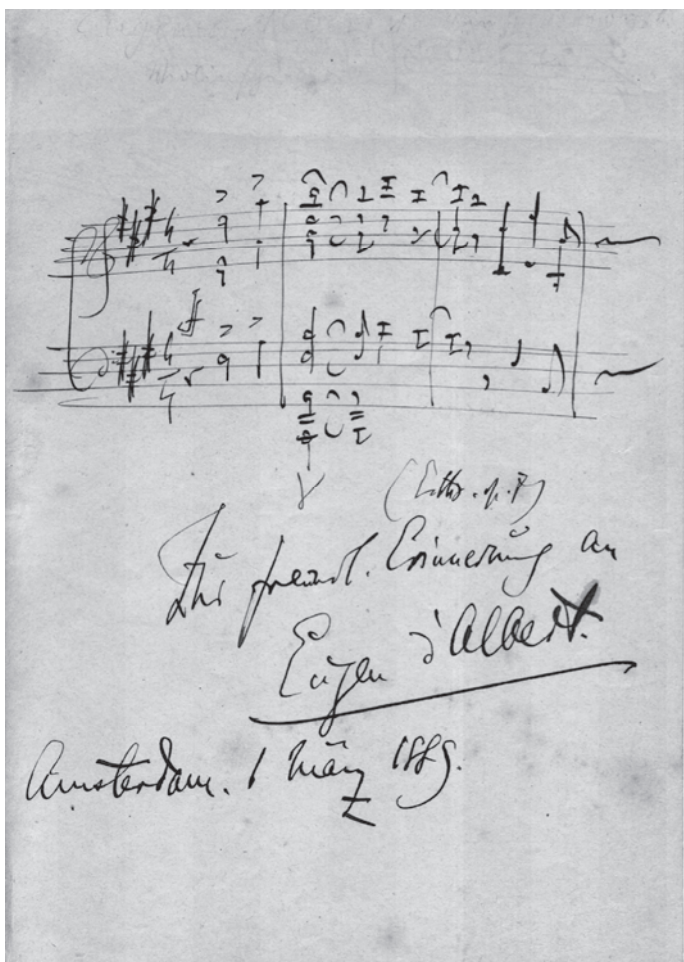 Zur freundl. Erinnerung an
Eugen d'Albert.
Amsterdam. 1 März 1889.